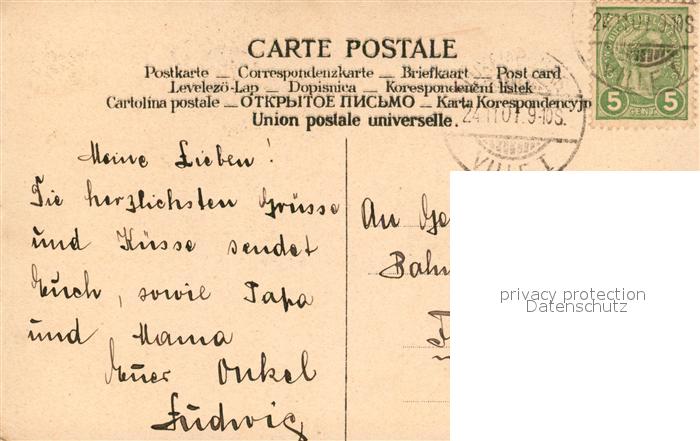 CARTE POSTALE
Postkarte — Correspondenzkarte — Briefkaart — Post card
Levelező-Lap — Dopisnica — Korespondenční listek
Cartolina postale — ОТКРЫТОЕ ПИСЬМО — Karta Korespondencyjn
Union postale universelle.
24.11.07. 9-10S.
VILLE
5 5
CENT.
Meine Lieben!
Die herzlichsten Grüsse
und Küsse sendet
Euch, sowie Papa
und Mama
Euer Onkel
Ludwig
An
Bahn
privacy protection
Datenschutz